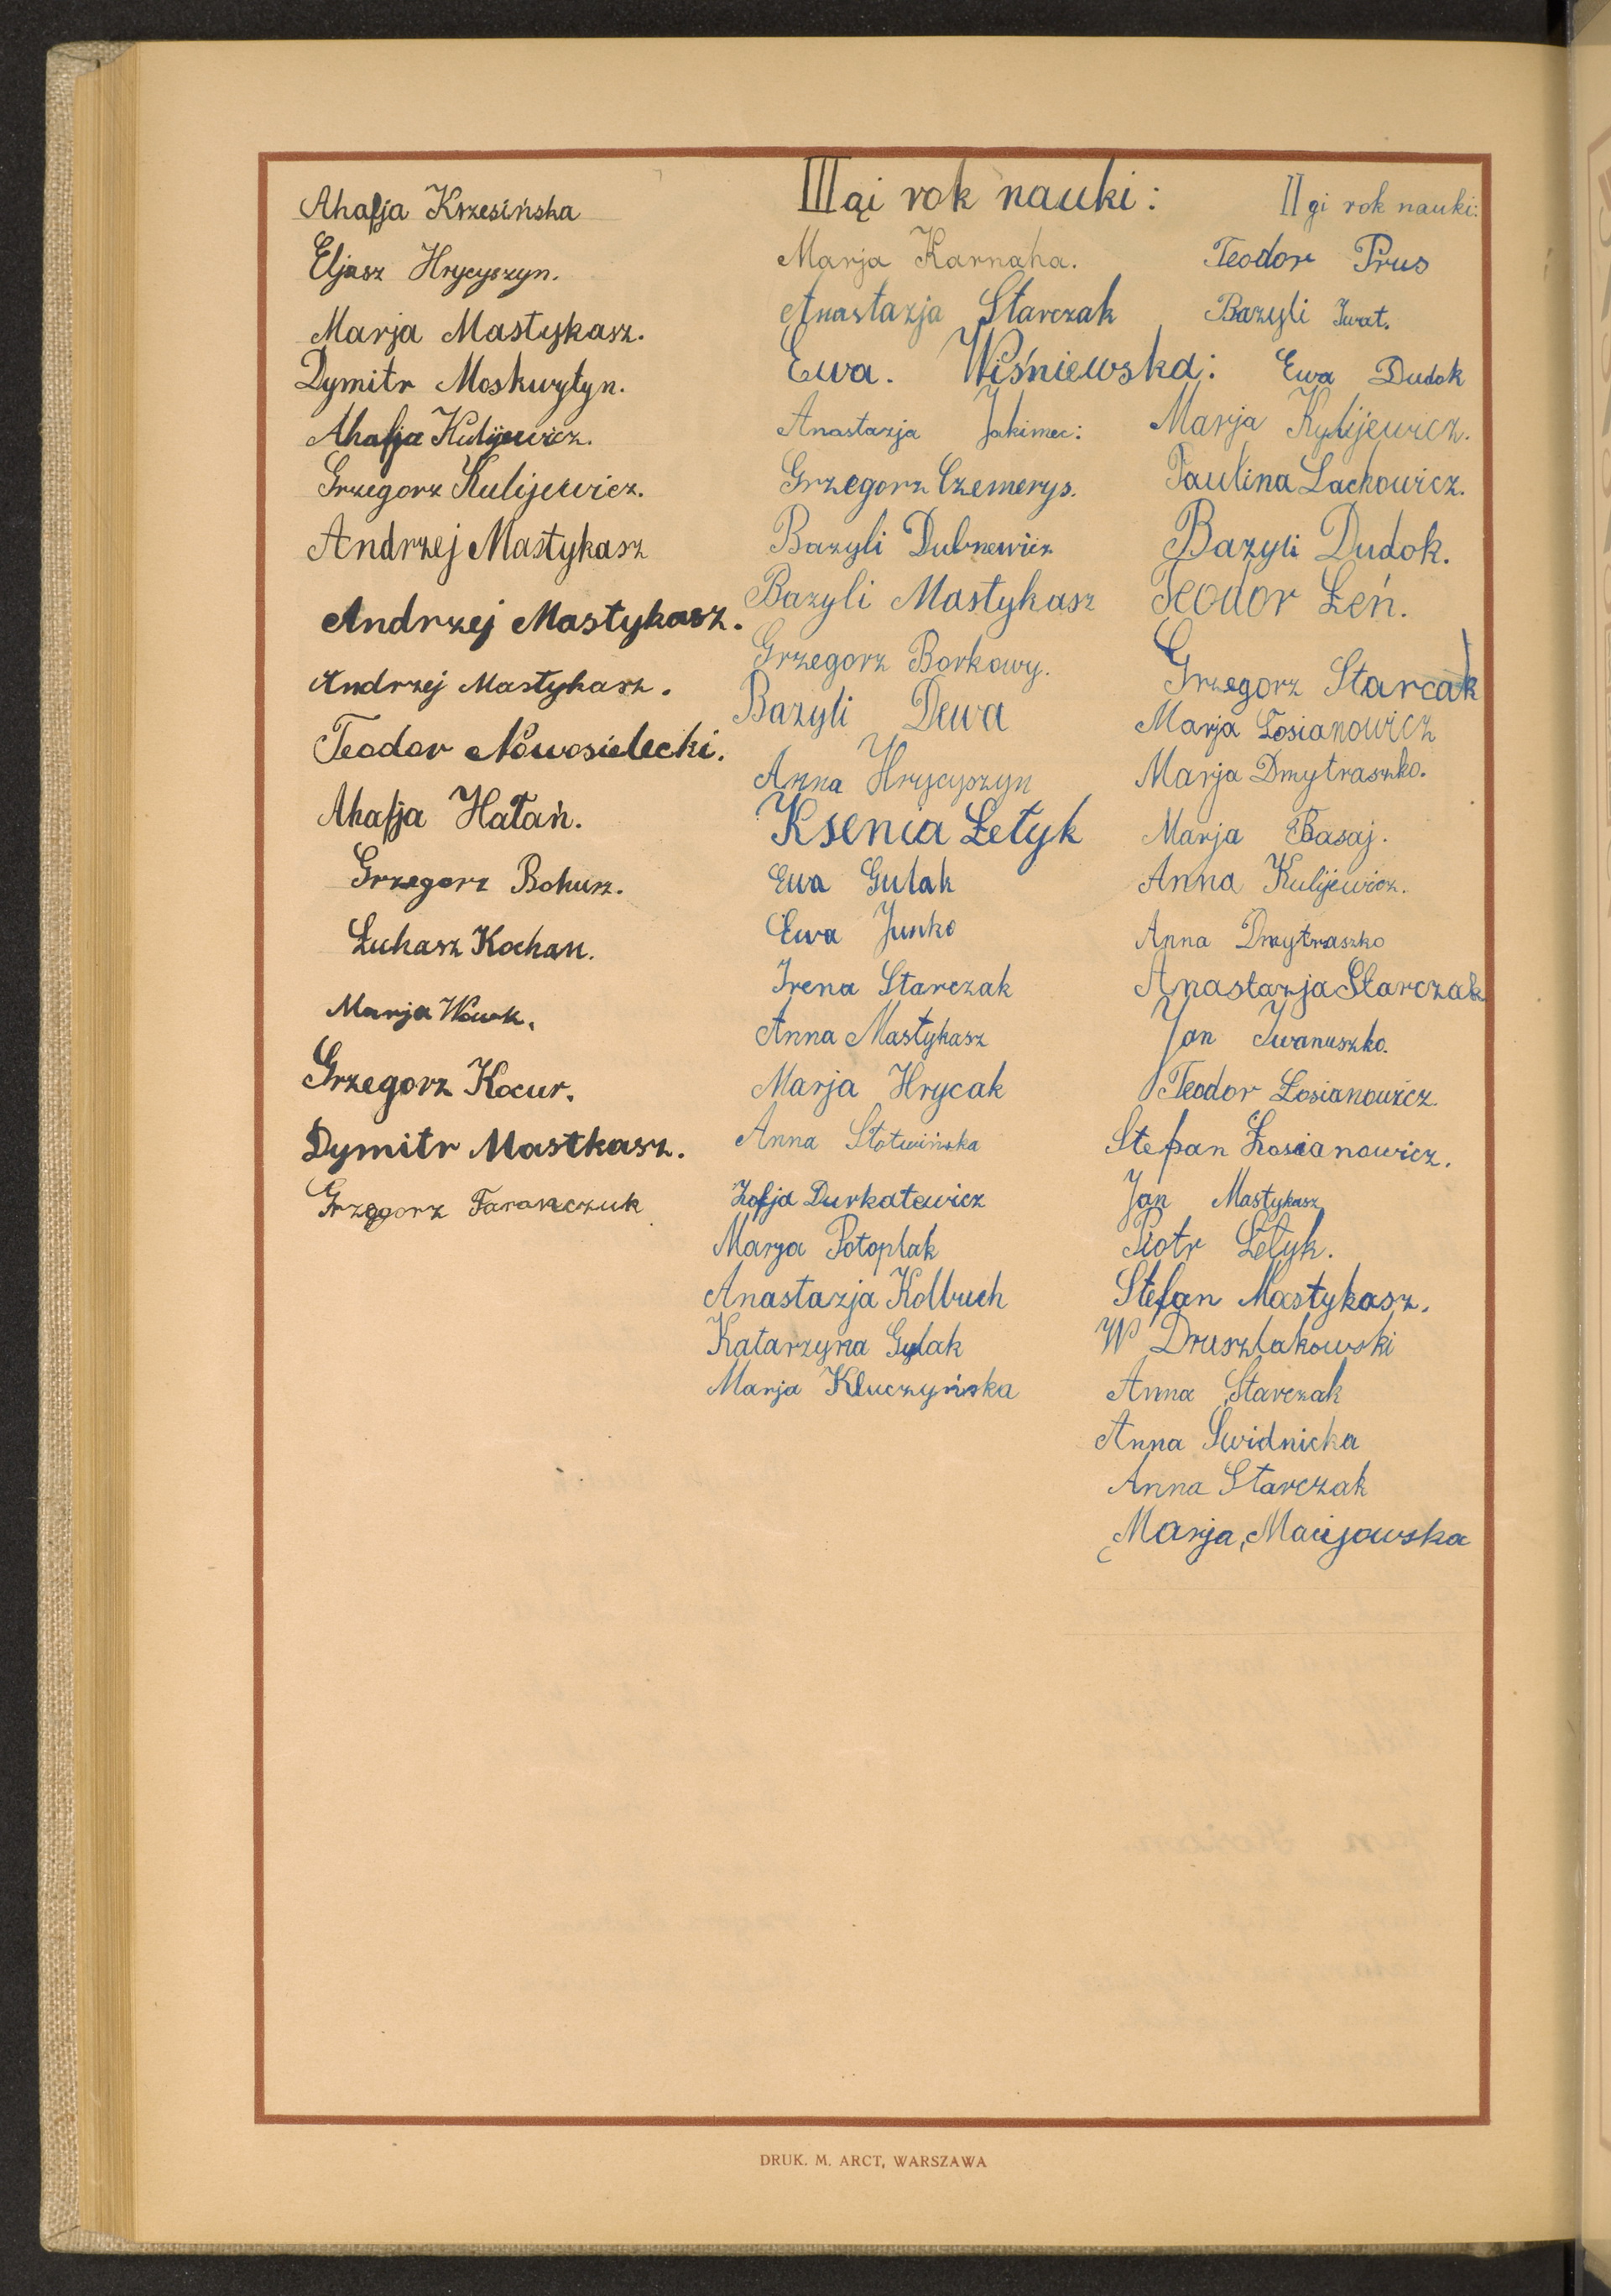 Ahafja Krzesińska
Eljasz Hrycyszyn.
Marja Mastykasz.
Dymitr Moskwytyn.
Ahafja Kulijewicz.
Grzegorz Kulijewicz.
Andrzej Mastykasz
Andrzej Mastykasz.
Andrzej Mastykasz.
Teodor Nowosielecki.
Ahafja Hałań.
Grzegorz Bohusz.
Łukasz Kochan.
Marja Wowk.
Grzegorz Kocur.
Dymitr Mastkasz.
Grzegorz Farańczuk
IIIąi rok nauki:
Marja Karnaha.
Anastazja Starczak
Ewa. Wiśniewska:
Anastazja Jakimec:
Grzegorz Czemerys.
Bazyli Dubnewicz
Bazyli Mastykasz
Grzegorz Borkowy.
Bazyli Dewa
Anna Hrycyszyn
Ksenia Łetyk
Ewa Gulak
Ewa Junko
Irena Starczak
Anna Mastykasz
Marja Hrycak
Anna Słotwińska
Zofja Durkatewicz
Marja Potoplak
Anastazja Kolbuch
Katarzyna Gulak
Marja Kluczyńska
II gi rok nauki:
Teodor Prus
Bazyli Iwat.
Ewa Dudok
Marja Kylijewicz.
Paulina Lachowicz.
Bazyli Dudok.
Teodor Łeń.
Grzegorz Starcak
Marja Łosianowicz
Marja Dmytraszko.
Marja Basaj.
Anna Kulijewicz.
Anna Dmytraszko
Anastazja Starczak
Jan Iwanuszko.
Teodor Łosianowicz.
Stefan Łosianowicz.
Jan Mastykasz
Piotr Łetyk.
Stefan Mastykasz.
W Druszlakowski
Anna Starczak
Anna Swidnicka
Anna Starczak
Marja, Macijowska
DRUK. M. ARCT, WARSZAWA